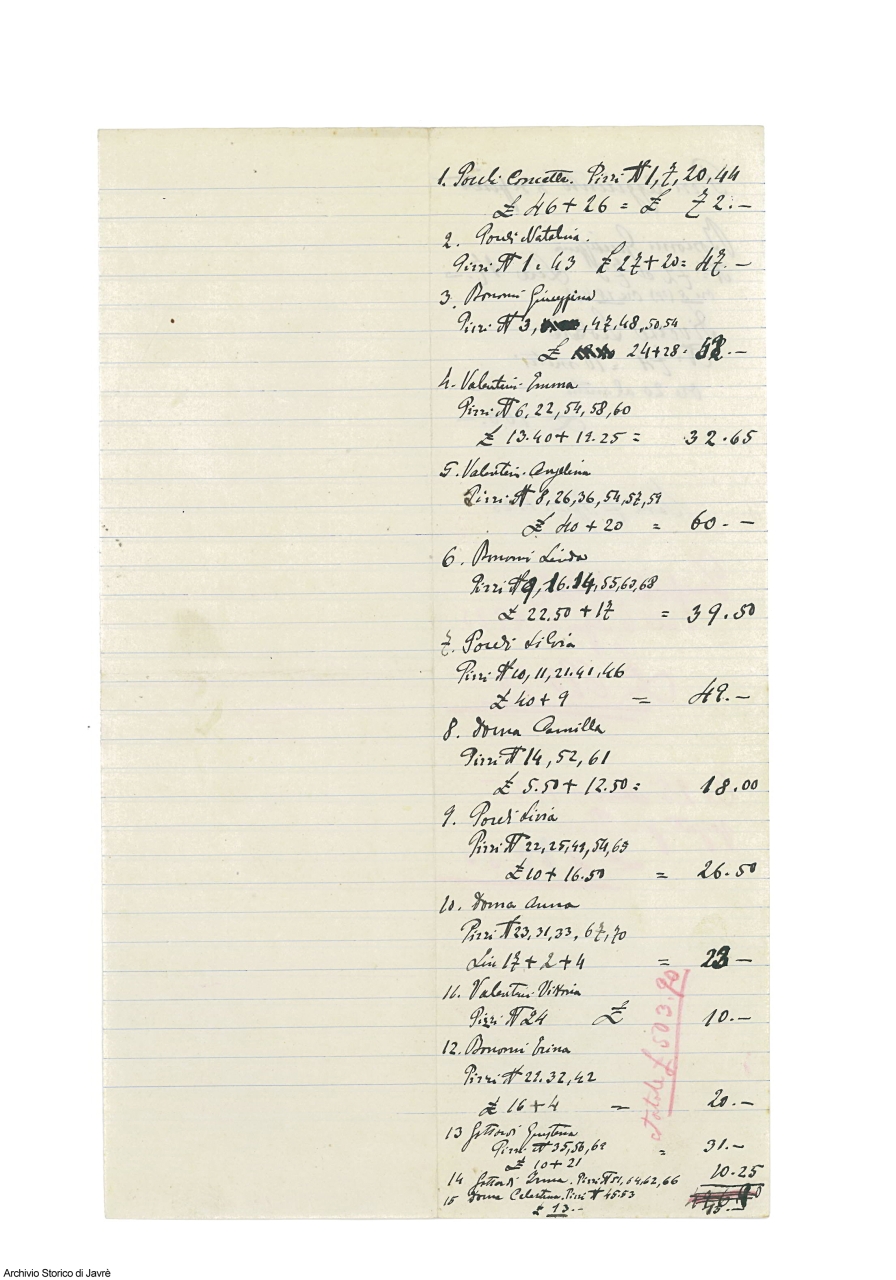 1. Povoli Concetta. Pizzi N 1, 7, 20, 44
£ 46 + 26 = £ 72.—
2. Povoli Natalina.
Pizzi N 1. 43 £ 27 + 20 = 47.—
3. Bonomi Giuseppina
Pizzi N 3, , 47, 48, 50, 54
£ 24 + 28 . 52.—
4. Valentini Emma
Pizzi N 6, 22, 54, 58, 60
£ 13.40 + 19.25 = 32.65
5. Valentini Angelina
Pizzi N 8, 26, 36, 54, 57, 59
£ 40 + 20 = 60.—
6. Bonomi Linda
Pizzi N 9, 16. 14, 55, 63, 68
£ 22.50 + 17 = 39.50
7. Povoli Silvia
Pizzi N 10, 11, 21. 41, 46
£ 40 + 9 = 49.—
8. Dorna Camilla
Pizzi N 14, 52, 61
£ 5.50 + 12.50 = 18.00
9. Povoli Livia
Pizzi N 22, 25, 49, 54, 69
£ 10 + 16.50 = 26.50
10. Dorna Anna
Pizzi N 23, 31, 33, 67, 70
Lire 17 + 2 + 4 = 23 —
11. Valentini Vittoria
Pizzi N 24 £ 10.—
12. Bonomi Erina
Pizzi N 29. 32, 42
£ 16 + 4 = 20.—
13 Gottardi Giustina
Pizzi N 35, 56, 69 = 31.—
£ 10 + 21
14 Gottardi Irma. Pizzi N 51, 54, 62, 66 10.25
15 Dorna Celestina. Pizzi N 45. 53
£ 13.— 13.—
totale £ 503,90
Archivio Storico di Javrè